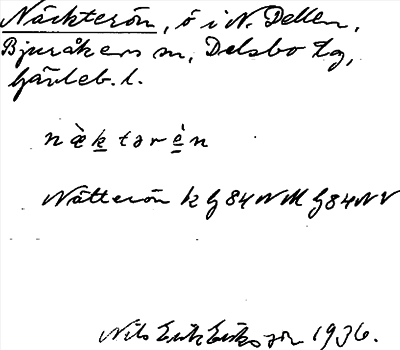 Näckterön, ö i N. Dellen,
Bjuråkers sn, Delsbo tg,
Gävleb. l.
næ̀ktərè̱n
Nätterön k G 84 NM G 84 NV
Nils Erik Eriksson 1936.